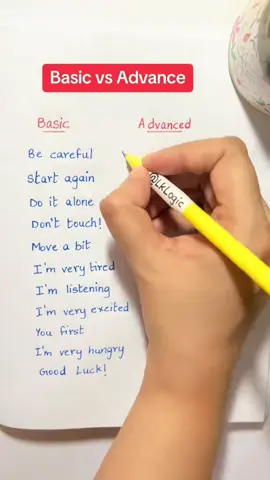 Basic vs Advance
Basic Advanced
Be careful
Start again
@LkLogic
Do it alone
Don't touch!
Move a bit
I'm very tired
I'm listening
I'm very excited
You first
I'm very hungry
Good Luck!